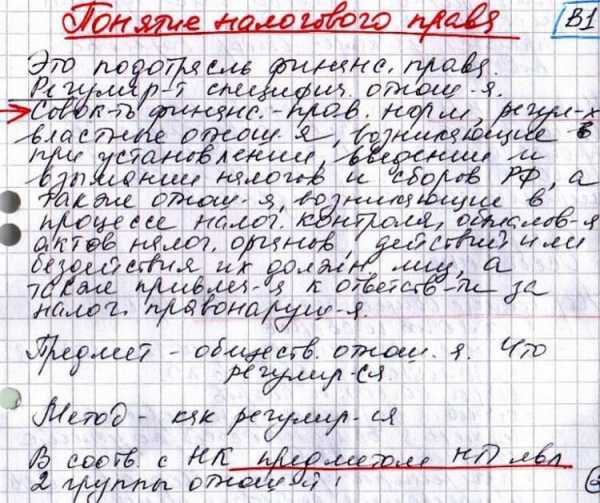 Понятие налогового права
В1
Это подотрасль финанс. права.
Регулир-т специфич. отнош-я.
Совок-ть финанс.-прав. норм, регул-х
властные отнош-я, возникающие в
при установлении, введении и
взымании налогов и сборов РФ, а
также отнош-я, возникающие в
процессе налог. контроля, обжалов-я
актов налог. органов, действий или
бездействия их должн. лиц, а
также привлеч-я к ответств-ти за
налог. правонаруш-я.
Предмет - обществ. отнош-я. Что
регулир-ся.
Метод - как регулир-ся
В соотв. с НК предметом НП явл
2 группы отношен